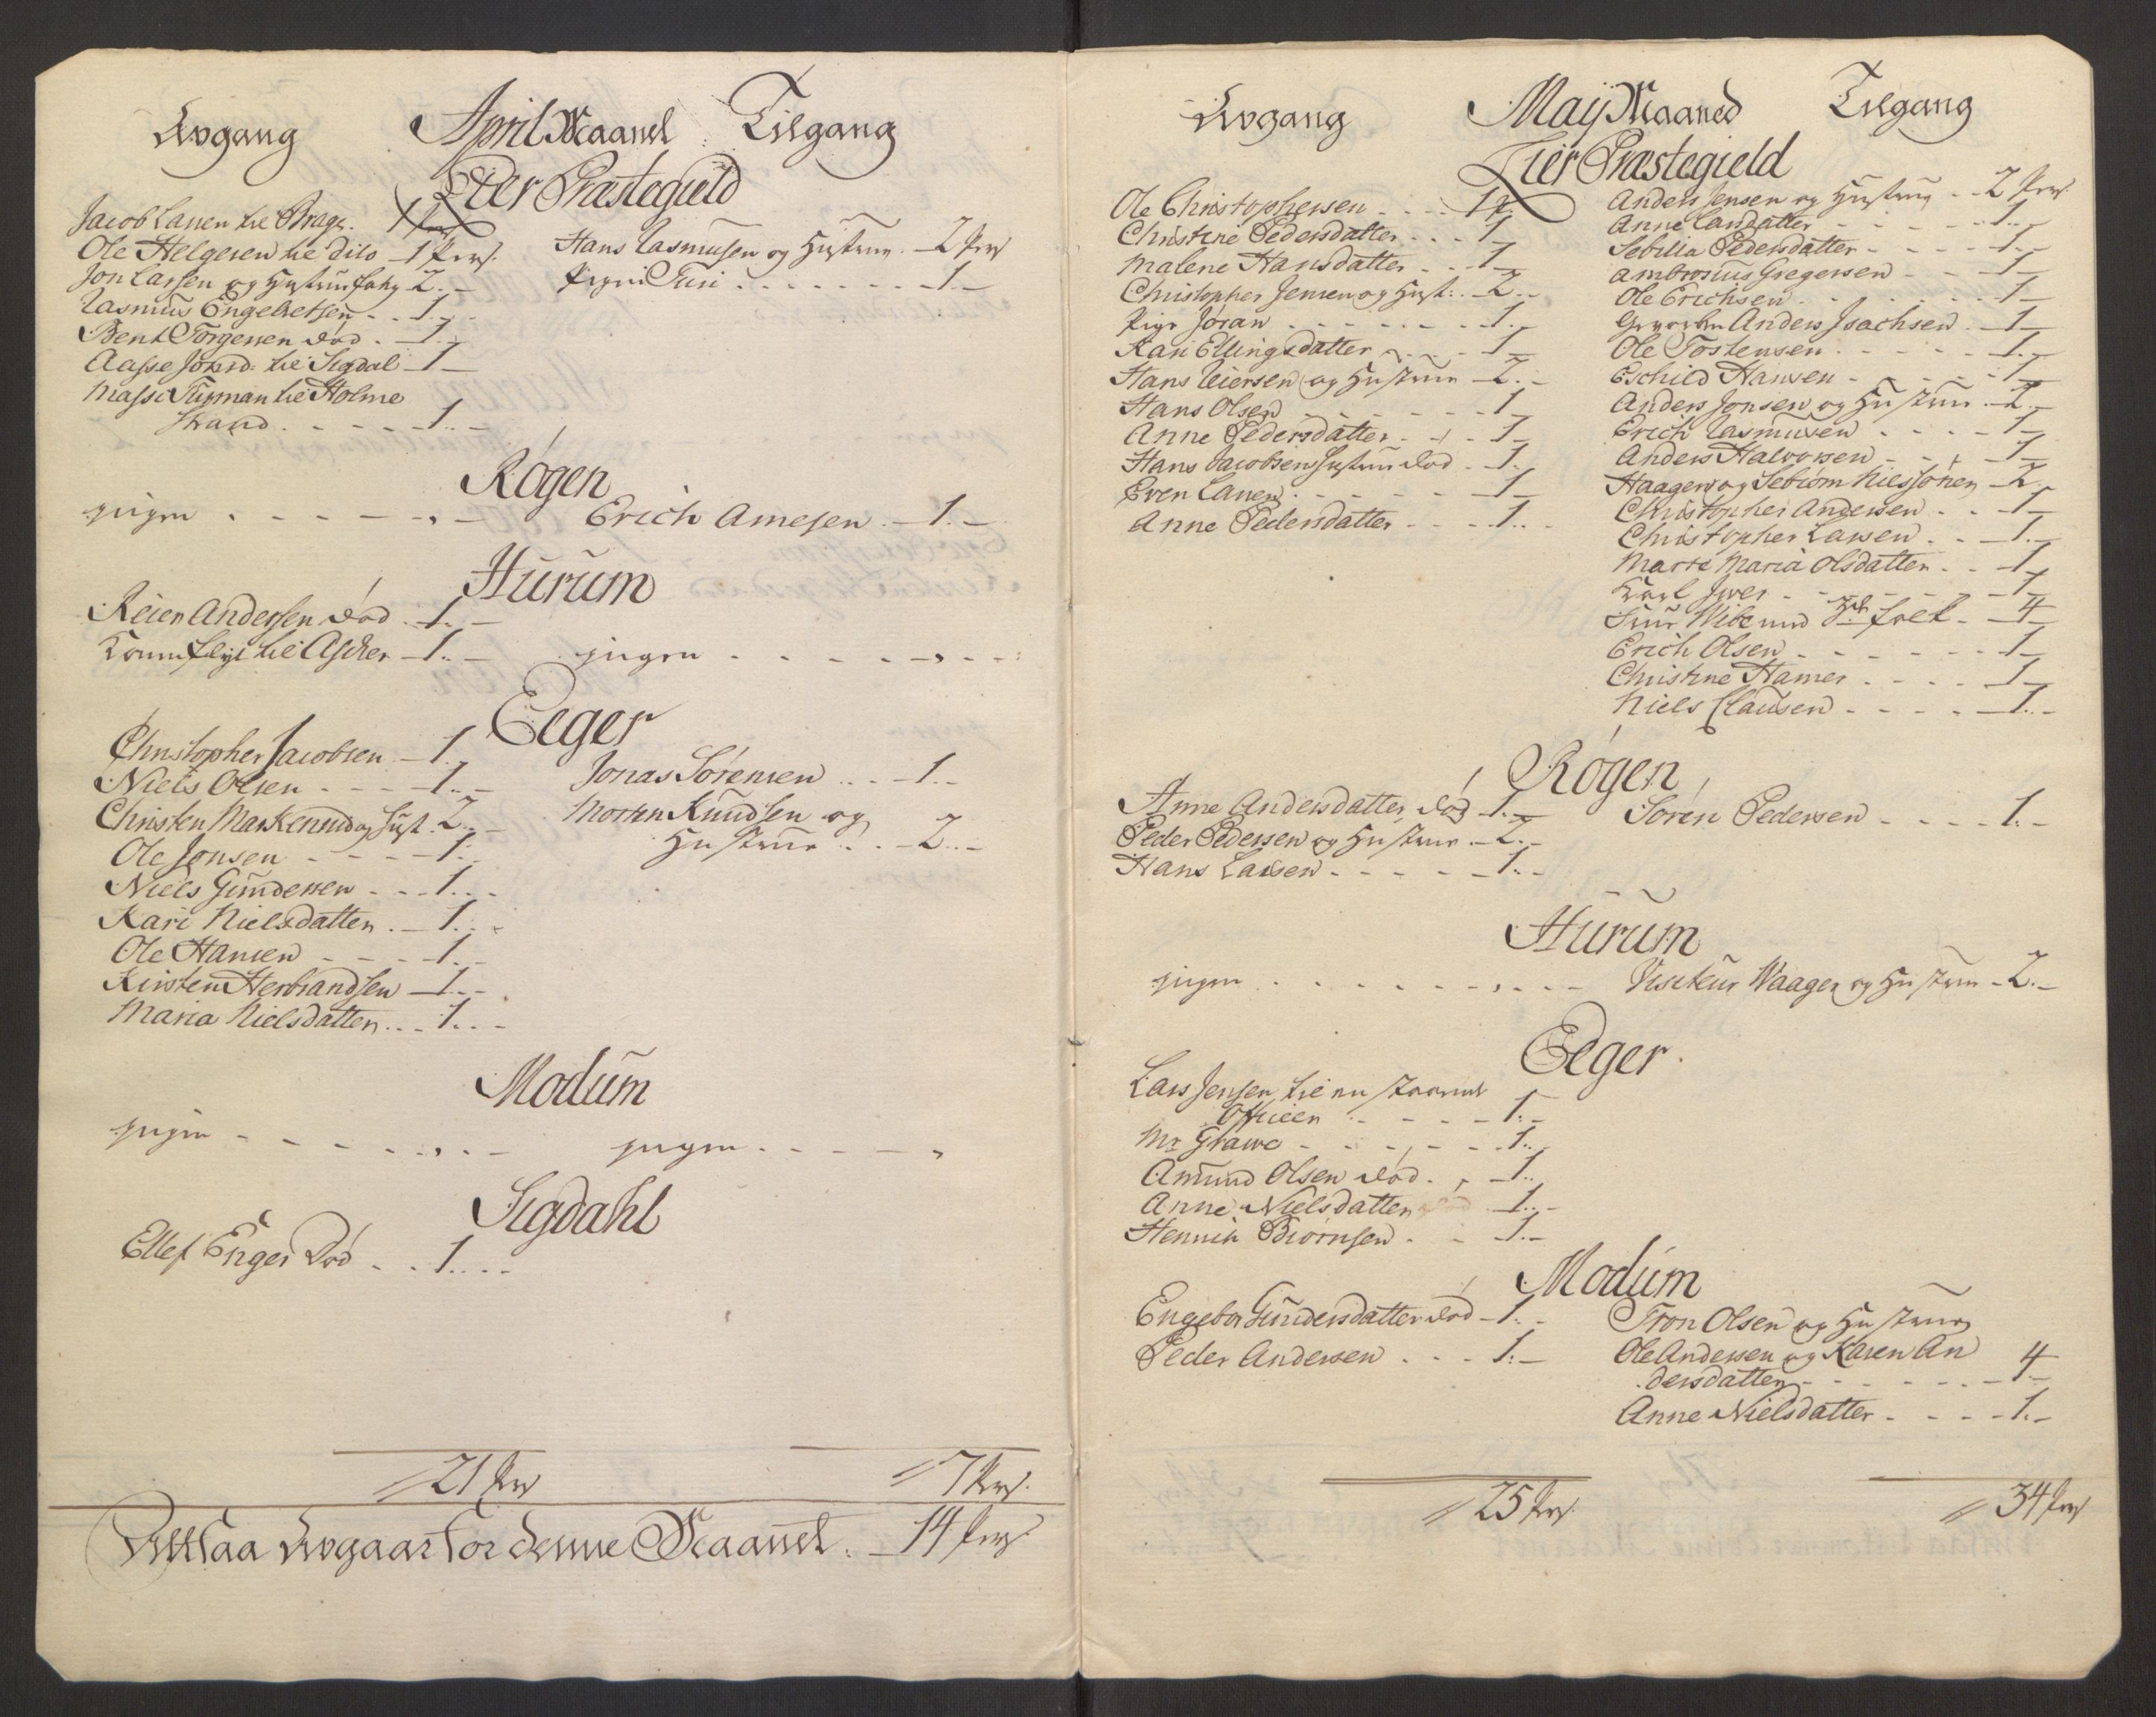 Avgang April Maaned Tilgang
Lier Præstegield
Jacob Larsen til Brage. 1 Pers
Ole Helgesen til dito 1 Pers. Hans Rasmusen og Hustrue. 2 Pers
Jon Larsen og Hustrue 2. Pigen Turi 1.
Rasmus Engebretsen 1.
Bent Torgersen død 1.
Aasse Jonsd. til Sigdal 1
til Holme
strand 1.
Røgen
jngen Erich Arnesen 1.
Hurum
Reier Andersen død 1.
til Ascher 1. jngen
Eeger
Christopher Jacobsen 1. Jonas Sørensen 1.
Niels Olsen 1. Morten Knudsen og
Christen og Hust. 2. Hustrue 2.
Ole Jonsen 1.
Niels Gundersen 1.
Kari Nielsdatter 1.
Ole Hansen 1.
Kirsten Herbrandsen 1.
Maria Nielsdatter 1.
Modum
jngen jngen
Sigdahl
Ellef Enger Død 1.
21 Pers 7 Pers.
Altsaa Avgaar for denne Maaned. 14 Pers
Avgang Maij Maaned Tilgang
Lier Præstegield
Ole Christophersen 1 P. Anders Jensen og Hustrue 2 Pers.
Christine Pedersdatter 1 Anne Larsdatter 1.
Malene Hansdatter 1 Sebilla Pedersdatter 1.
Christopher Jensen og Hust: 2. Ambrosius Gregersen 1
Pige Jøran 1. Ole Erichsen 1
Kari Ellingsdatter 1 Anders Isachsen 1
Hans Reiersen og Hustrue 2. Ole Tostensen 1.
Hans Olsen 1 Eschild Hansen 1
Anne Pedersdatter 1 Anders Jonsen og Hustrue 2.
Hans Jacobsens Hustrue død 1. Erich Rasmusen 1
Even Larsen 1 Anders Halvorsen 1
Anne Pedersdatter 1. Haagen og Sebiørn Nielssønner 2.
Christopher Andersen 1
Christopher Larsen 1.
Marte Maria Olsdatter 1
Iver 1
Wibe med 3de folk 4
Erich Olsen 1
Christine Hamer 1
Niels Clausen 1.
Røgen
Anne Andersdatter død 1. Søren Pedersen 1.
Peder Pedersen og Hustrue 2.
Hans Larsen 1.
Hurum
jngen Visiteur Waager og Hustrue 2.
Eeger.
Lars Jensen til
Officeer 1.
Mr. Grawe 1.
Amund Olsen død 1.
Anne Nielsdatter 1.
Henrich Biørnsen 1.
Modum
Engebor Gundersdatter død 1. Tron Olsen og Hustrue
Peder Andersen 1. Ole Andersen og Karen An
dersdatter 4
Anne Nielsdatter 1.
25 Pers. 34 Pers